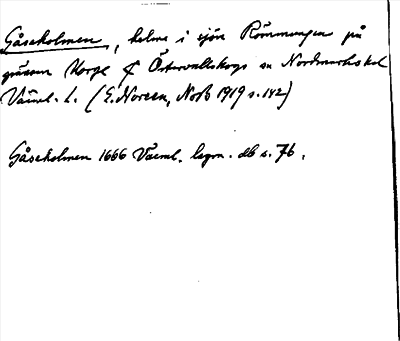 Gåseholmen, holme i sjön Römmungen på
gränsen Norge / Östervallskogs sn Nordmarks hd
Värml. l. (E. Noreen, NoB 1919 s. 142)
Gåseholmen 1666 Värml. lagm. db s. 76.